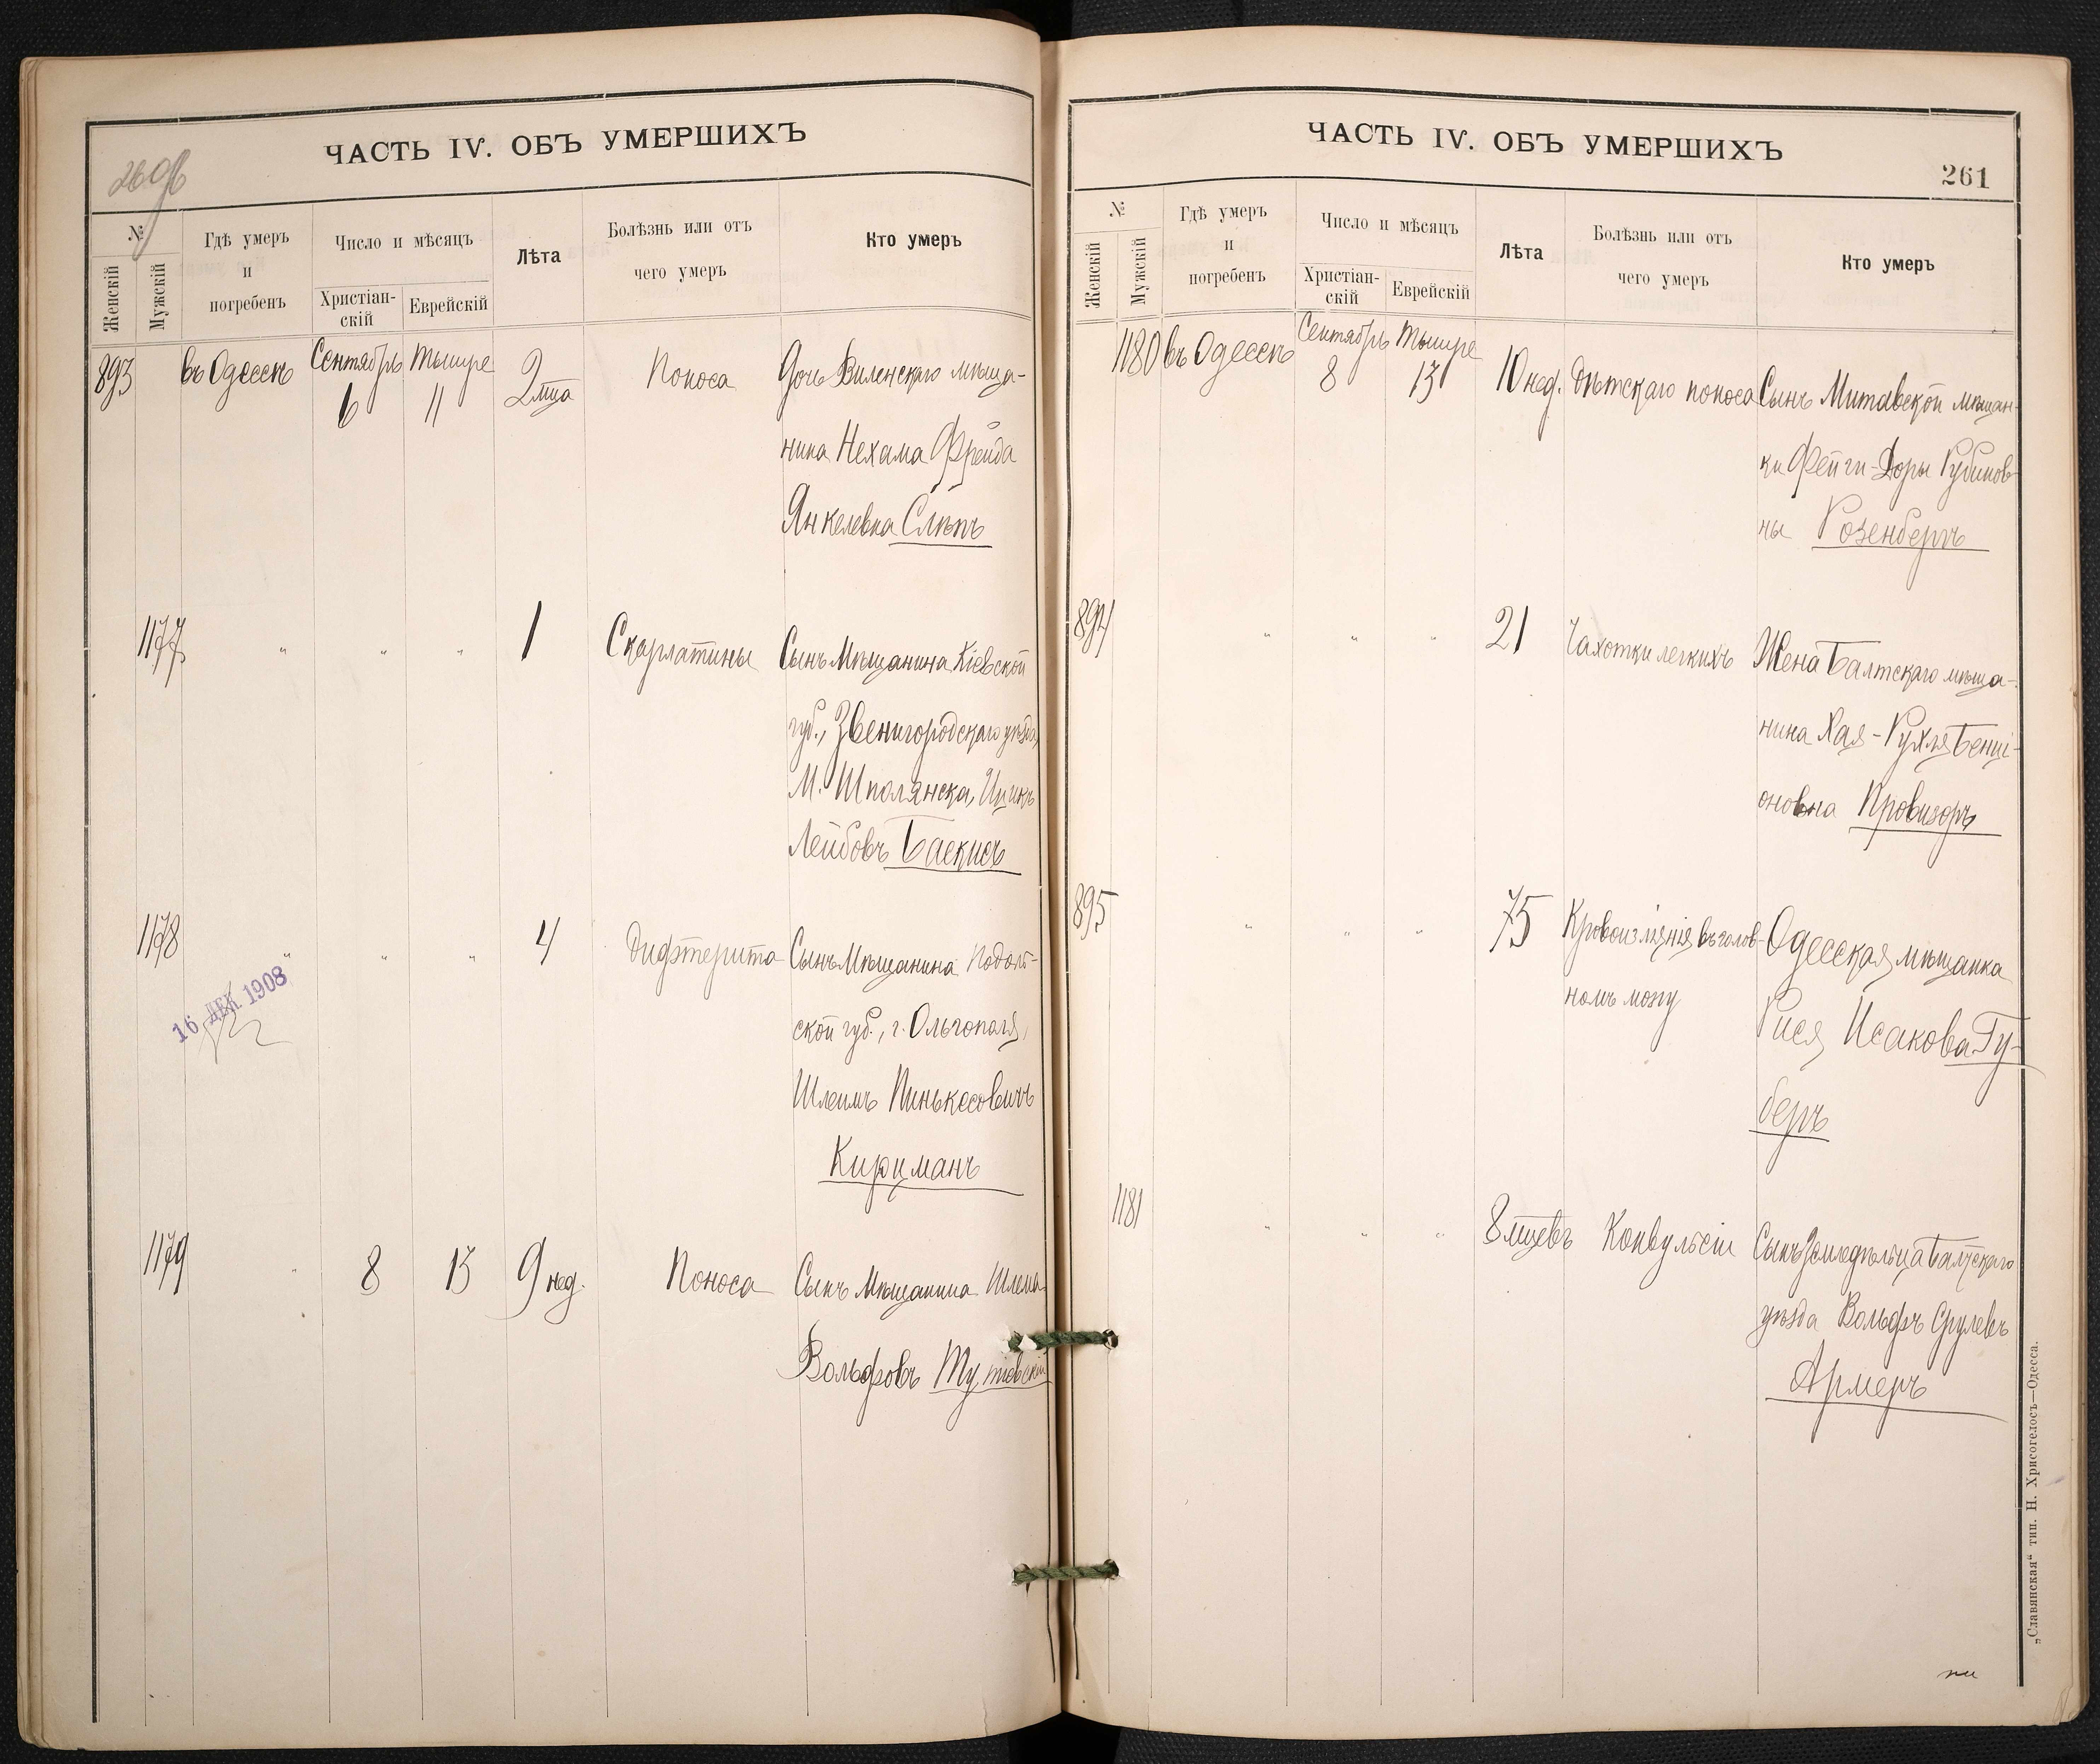 ЧАСТЬ IV. ОБЪ УМЕРШИХЪ
260б
№
Женскій
Мужскій
Гдѣ умеръ
и
погребенъ
Число и мѣсяцъ
Христіан-
скій
Еврейскій
Лѣта
Болѣзнь или отъ
чего умеръ
Кто умеръ
893 въ Одессѣ Сентябрь Тышре 2 мца Поноса Дочь Виленскаго мѣща-
6 11
нина Нехама Фрейда
Янкелевна Слѣпъ
1177 " " " 1 Скарлатины Сынъ Мѣщанина Кіевской
губ., Звенигородскаго уѣзда,
М. Шполянска, Ицикъ
Лейбовъ Баскисъ
1178 " " " 4 Дифтерита Сынъ Мѣщанина Подоль-
ской губ., г. Ольгополя,
Шлеимъ Пинькесовичъ
Кирцманъ
16 ДЕК 1908
1179 " 8 13 9 нед. Поноса Сынъ Мѣщанина Шлема
Вольфовъ
ЧАСТЬ IV. ОБЪ УМЕРШИХЪ
261
№
Женскій
Мужскій
Гдѣ умеръ
и
погребенъ
Число и мѣсяцъ
Христіан-
скій
Еврейскій
Лѣта
Болѣзнь или отъ
чего умеръ
Кто умеръ
1180 въ Одессѣ Сентябрь Тышре 10 нед. Дѣтскаго поноса Сынъ Митавской мѣщан-
8 13
ки Фейги-Доры Рубинов-
ны Розенбергъ
894 " " " 21 Чахотки легкихъ Жена Балтскаго мѣща-
нина Хая-Рухля Бенці-
оновна Провизоръ
895 " " " 75 Кровоизліянія въ голов- Одесская мѣщанка
номъ мозгу
Рися Исакова Гу-
беръ
1181 " " " 8 мцевъ Конвульсіи Сынъ Земледѣльца Балтскаго
уѣзда Вольфъ Срулевъ
Армеръ
„Славянская“ тип. Н. Хрисогелосъ—Одесса.